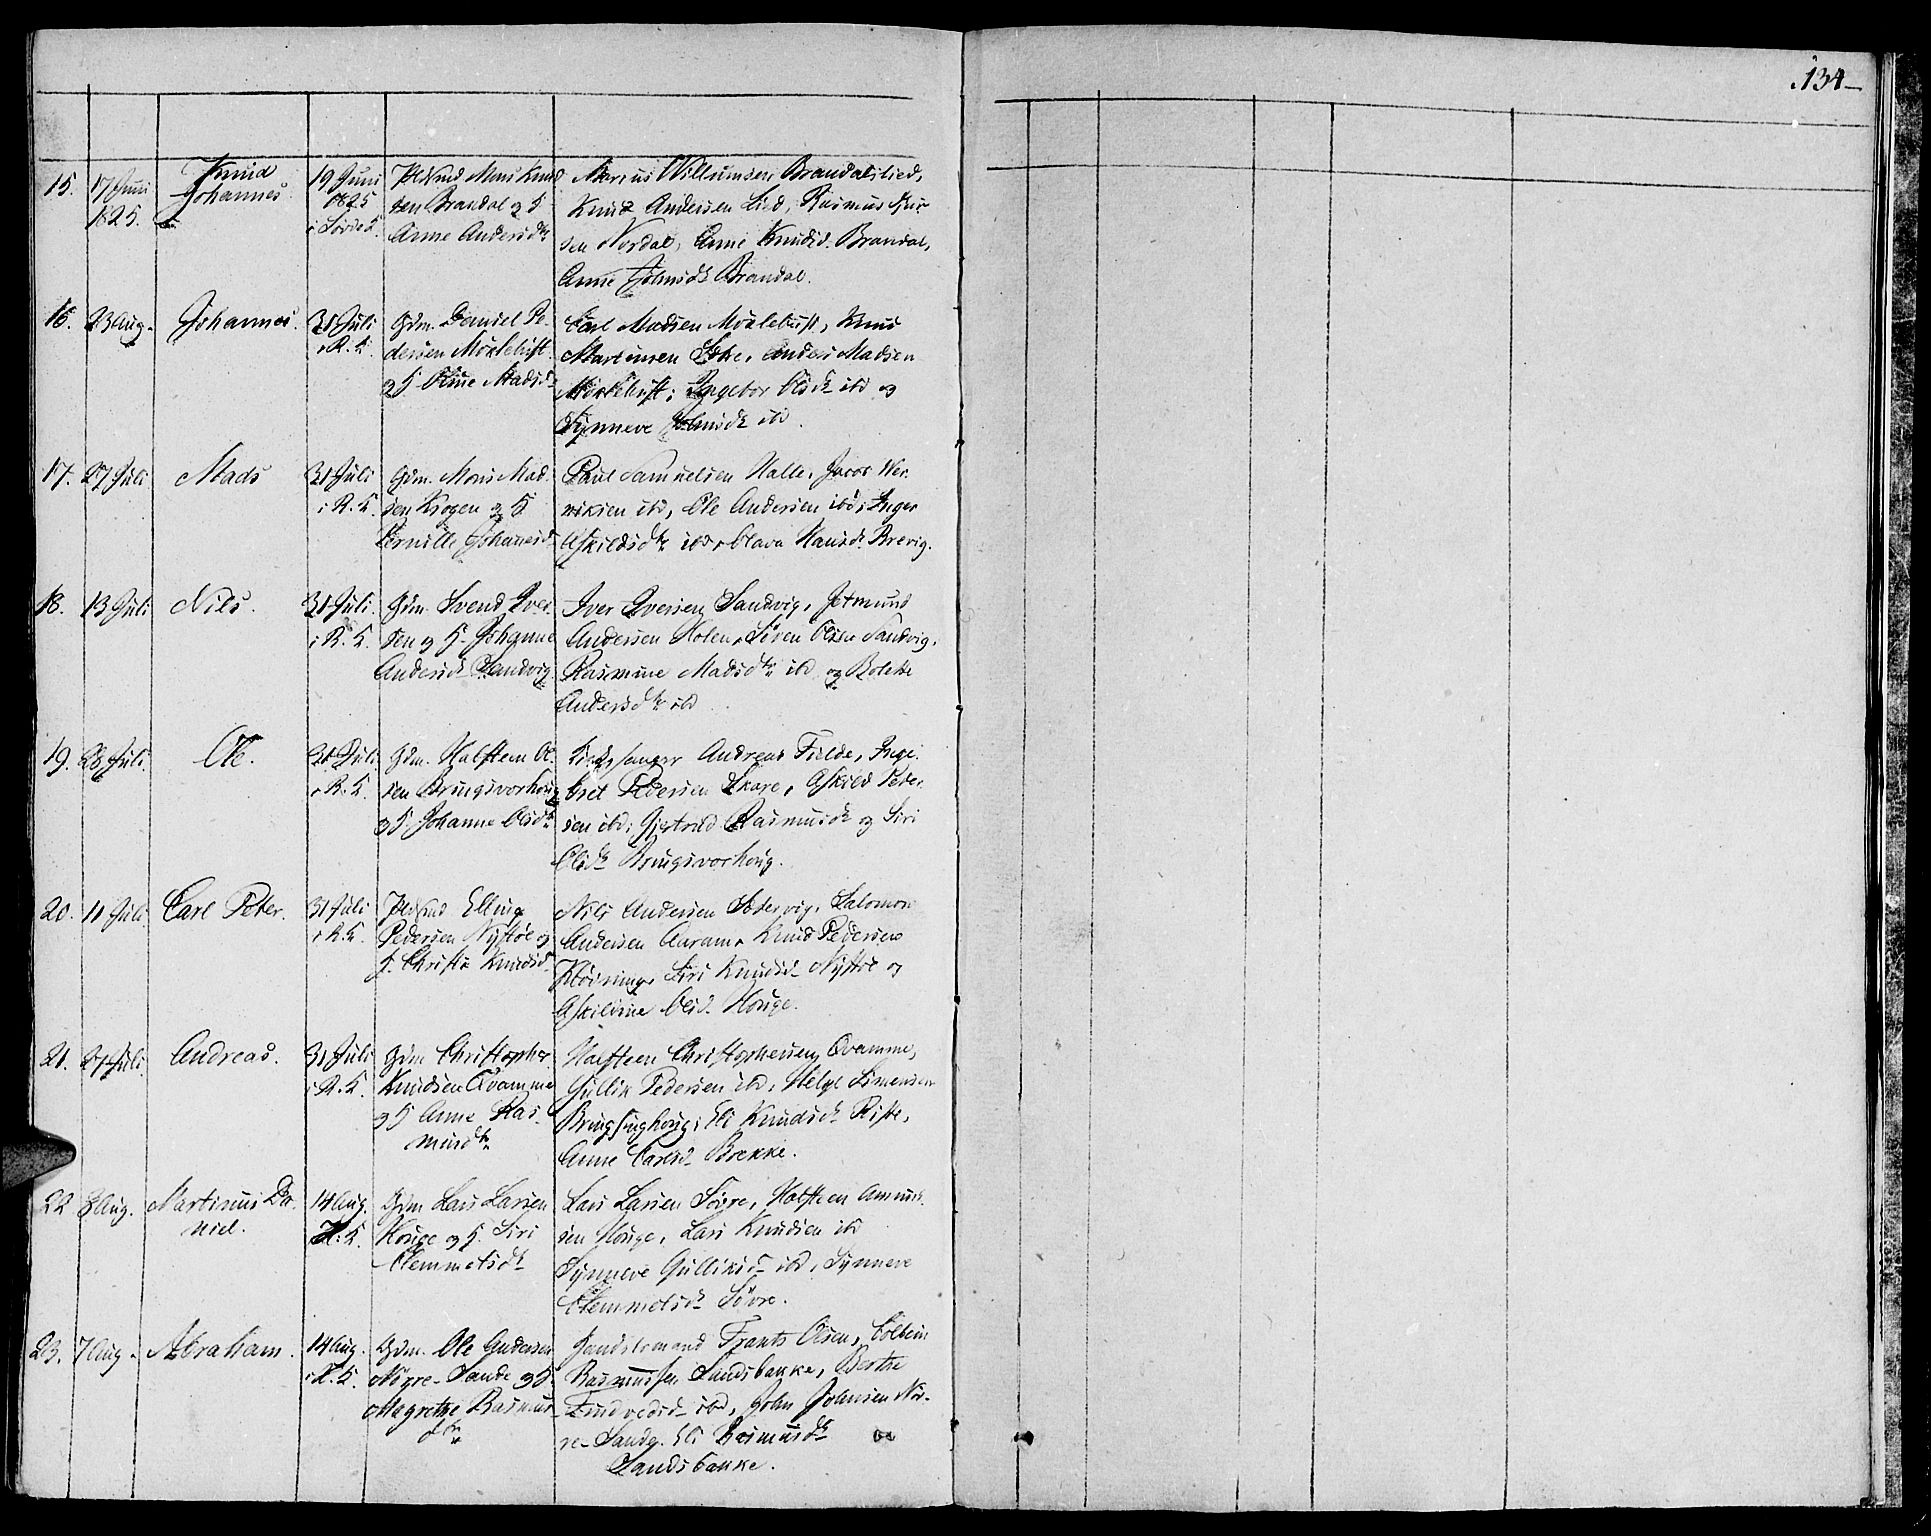 134
15. 17 Juni 1825. Knud Johannes 19 Juni 1825 Mons Knud
sen Brandal og H
Anne Andersdtr
Marius Willumsen Brandalslied,
Knud Andersen Lied, Rasmus
sen Nordal, Anne Knudsd. Brandal,
Anne Johnsdtr Brandal.
16. 23 Aug. Johannes. 31 Juli i R. K. Gdm. Daniel Pe
dersen Möklebust
og H Oline Madsd
Carl Madsen Möklebust, Knud
Martinsen, Anders Madsen
Möklebust; Ingebor Olsdtr ibd og
Synneve Johnsdtr ibd.
17. 27 Juli Mads 31 Juli i R. K. Gdm. Mons Mad
sen Krogen og H
Pernille Johannesd
Paul Samuelsen Halle, Jacob Hen
riksen ibd, Ole Andersen ibd; Inger
Askildsdtr ibd, Olava Hansd. Brevig.
18. 13 Juli Nils. 31 Juli i R. K. Gdm. Svend Iver
sen og H. Johanne
Andersdtr Sandvig
Iver Iversen Sandvig, Jetmund
Andersen Holen, Sören Olsen Sandvig,
Rasmine Madsdtr ibd, og Bolette
Andersdtr ibd
19. 28 Juli. Ole. 31 Juli i R. K. Gdm. Halsteen Ol
sen Bringsvorhoug
og H Johanne Olsdtr
Kirkesanger Andreas Fielde, Inge
bret Pedersen Skare, Askild Peder
sen ibd; Gjertrud Rasmusdtr og Siri
Olsdtr Bringsvorhoug.
20. 11 Juli Carl Peter. 31 Juli i R. K. Elling
Pedersen Nystöe og
H. Christi Knudsd
Nils Andersen Sætervig, Salomon
Andersen Auram, Knud Pedersen
Flöisning, Siri Knudsd Nystöe og
Askildine Olsd. Houge.
21. 27 Juli. Andreas. 31 Juli i R. K. Gdm Christopher
Knudsen Qvamme
og H Anne Ras
musdtr
Halsteen Christophersen Qvamme,
Gullik Pedersen ibd, Helge Simensen
Bringsinghoug; Eli Knudsdtr Riste,
Anne Carlsd Brekke.
22 3 Aug. Martinus Da
niel. 14 Aug. R. K. Gdm Lars Larsen
Houge og H. Siri
Clemmetsdtr
Lars Larsen Sövre, Halsteen Amund
sen Houge, Lars Knudsen ibd
Synneve Gulliksd ibd, Synneve
Clemmetsdtr Sövre.
23. 7 Aug. Abraham. 14 Aug. i R. K. Gdm. Ole Andersen
Nöyre-Sande og H.
Magrethe Rasmus
dtr
Frants Olsen, Colbein
Rasmussen Sandsbakke, Berthe
Sindvedsd ibd, John Johnsen Nör-
re-Sande. Eli Rasmusdtr
Sandsbakke.